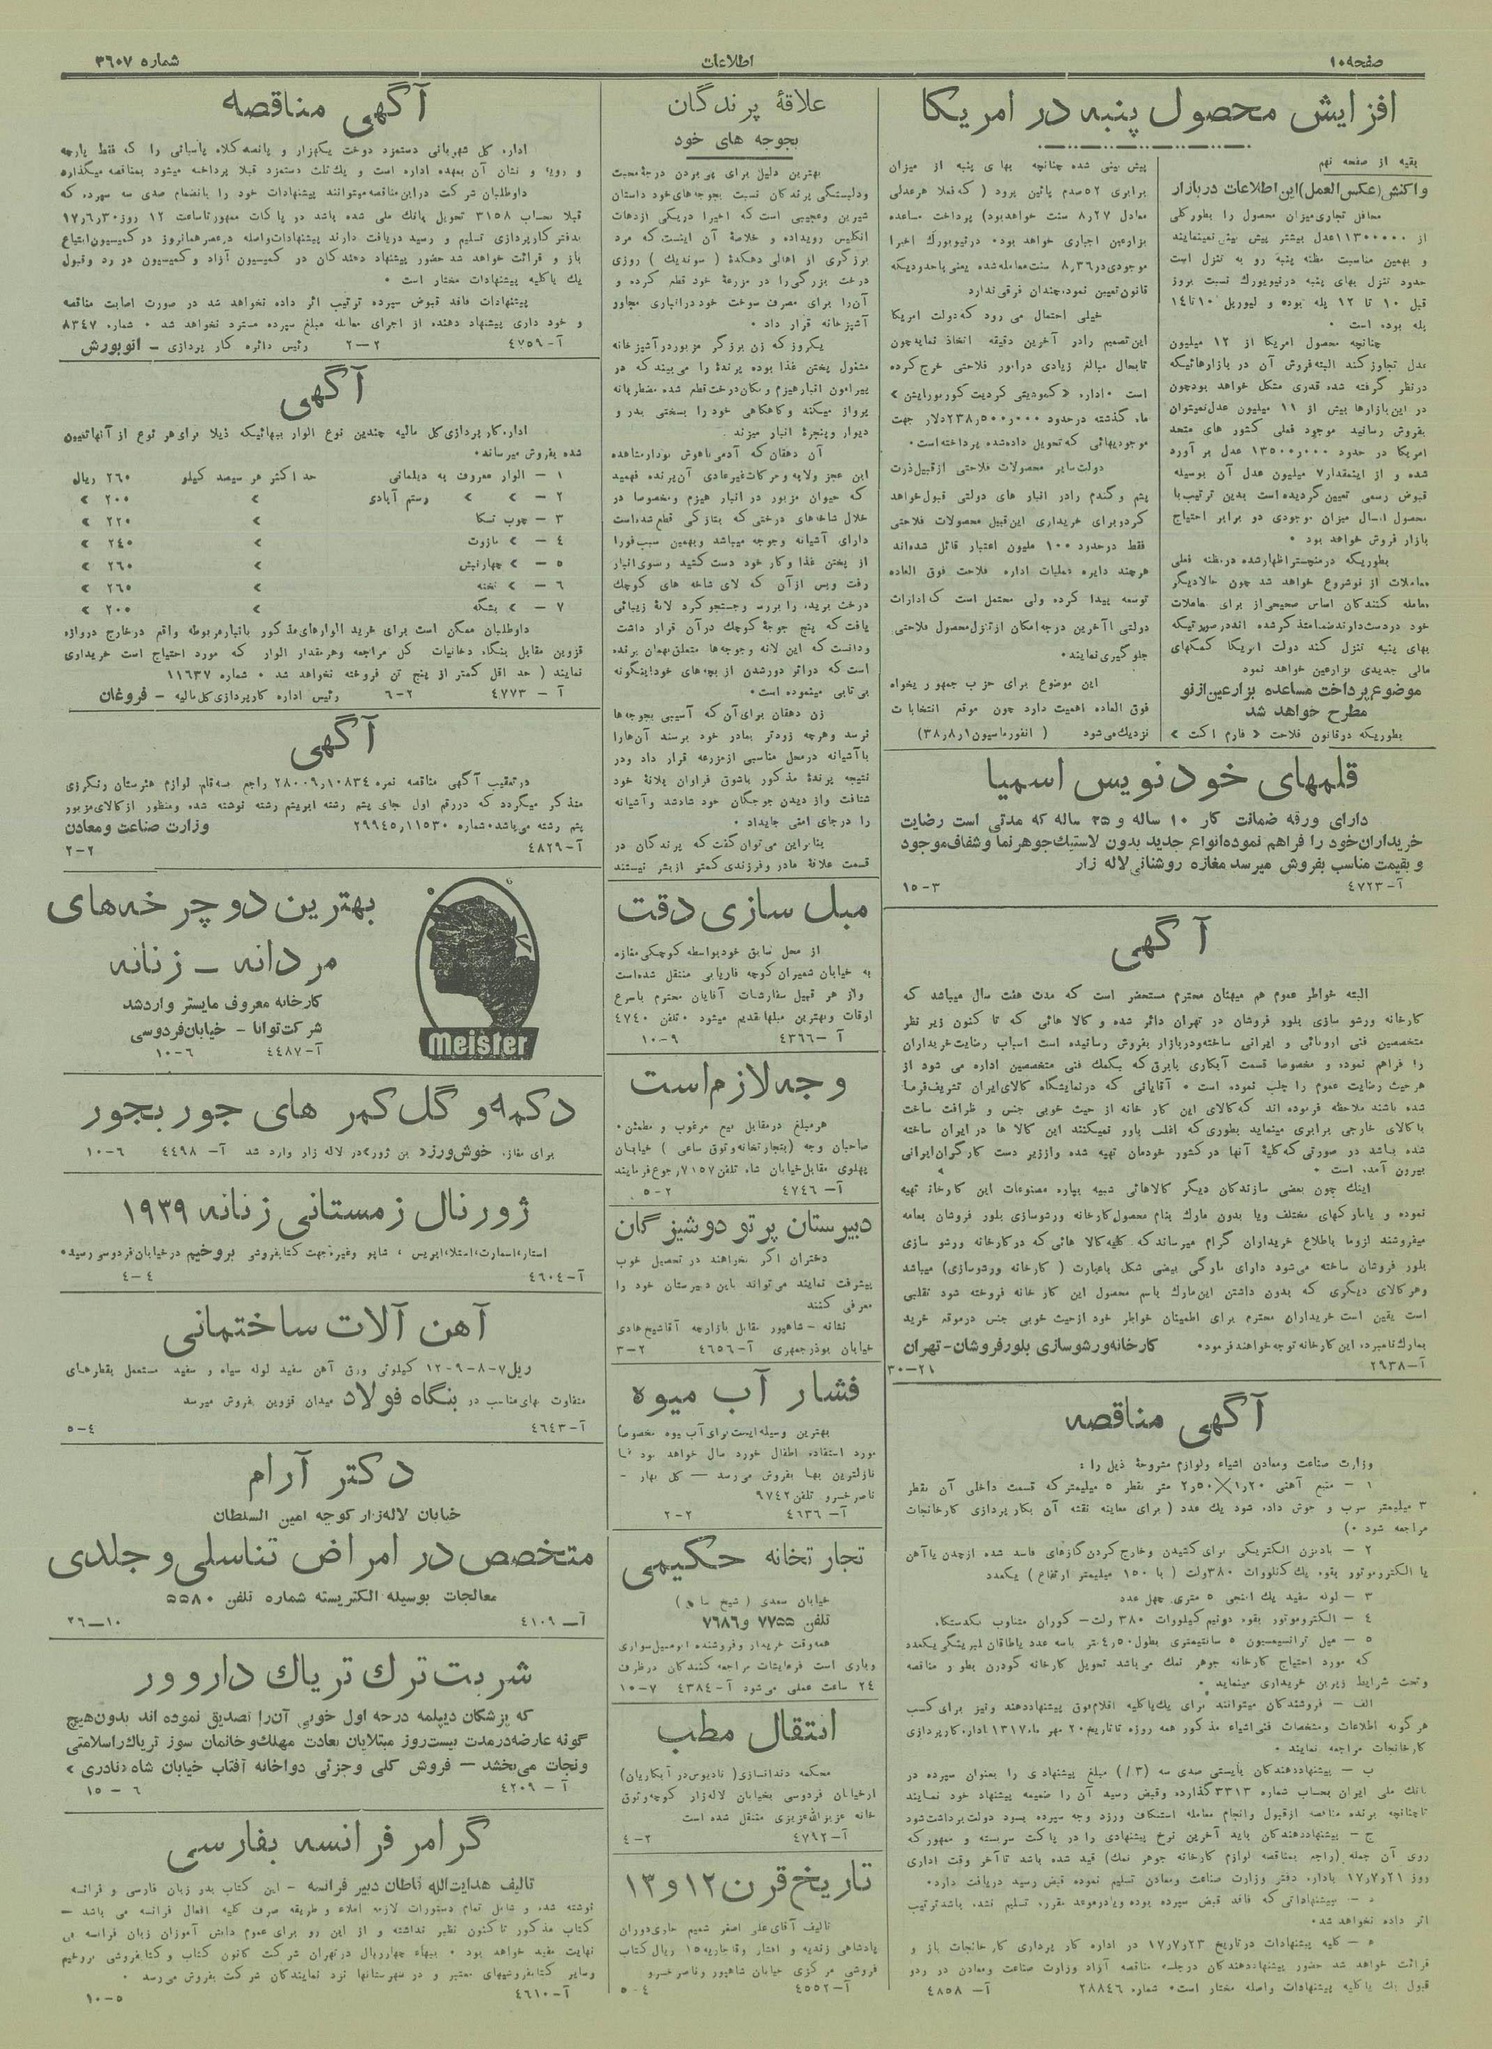 صفحه ۱۰
اطلاعات
شماره ۳۶۰۷
افزایش محصول پنبه در امریکا
بقیه از صفحه نهم
واکنش (عکس‌العمل) این اطلاعات در بازار
محافل تجاری میزان محصول را بطور کلی
از ۱۱۳۰۰۰۰۰ عدل بیشتر پیش بینی نمینمایند
و بهمین مناسبت مظنه پنبه رو به تنزل است
حدود تنزل بهای پنبه در نیویورك نسبت بروز
قبل ۱۰ تا ۱۲ پله بوده و لیورپل ۱۰ تا ۱۴
پله بوده است ۰
چنانچه محصول امریکا از ۱۲ میلیون
عدل تجاوز کند البته فروش آن در بازارهائیکه
در نظر گرفته شده قدری مشکل خواهد بود چون
در این بازارها بیش از ۱۱ میلیون عدل نمیتوان
بفروش رسانید موجود فعلی کشور های متحد
امریکا در حدود ۱۳۵۰۰٫۰۰۰ عدل بر آورد
شده و از اینمقدار ۷ میلیون عدل آن بوسیله
قبوض رسمی تعیین گردیده است بدین ترتیب با
محصول امسال میزان موجودی دو برابر احتیاج
بازار فروش خواهد بود ۰
بطوریکه در منچستر اظهار شده در مظنه فعلی
معاملات از نو شروع خواهد شد چون حالا دیگر
معامله کنندگان اساس صحیحی از برای معاملات
خود در دست دارند ضمنا متذکر شده اند در صورتیکه
بهای پنبه تنزل کند دولت امریکا کمکهای
مالی جدیدی بزارعین خواهد نمود
موضوع پرداخت مساعده بزارعین از نو
مطرح خواهد شد
بطوریکه در قانون فلاحت « فارم اکت »
پیش بینی شده چنانچه بهای پنبه از میزان
برابری ۵۲ صدم پائین برود ( که فعلا هر عدلی
معادل ۸٫۲۷ سنت خواهد بود) پرداخت مساعده
بزارعین اجباری خواهد بود۰ در نیویورك اخیرا
موجودی در ۸٫۳۶ سنت معامله شده یعنی با حدودیکه
قانون تعیین نموده چندان فرقی ندارد
خیلی احتمال می رود که دولت امریکا
این تصمیم را در آخرین دقیقه اتخاذ نماید چون
تا بحال مبالغ زیادی در امور فلاحتی خرج کرده
است ۰ اداره «کمودیتی کردیت کورپورایشن»
ماه گذشته در حدود ۲۳۸٫۵۰۰٫۰۰۰ دلار جهت
موجودیهائی که تحویل داده شده پرداخته است۰
دولت سایر محصولات فلاحتی از قبیل ذرت
پشم و گندم را در انبار های دولتی قبول خواهد
کرد و برای خریداری این قبیل محصولات فلاحتی
فقط در حدود ۱۰۰ ملیون اعتبار قائل شده‌اند
هر چند دایره عملیات اداره فلاحت فوق العاده
توسعه پیدا کرده ولی محتمل است که ادارات
دولتی تا آخرین درجه امکان از تنزل محصول فلاحتی
جلو گیری نمایند۰
این موضوع برای حزب جمهوریخواه
فوق العاده اهمیت دارد چون موقع انتخابات
نزدیك می‌شود ( انفورماسیون ۳۸٫۸٫۱)
قلمهای خودنویس اسمیا
دارای ورقه ضمانت کار ۱۰ ساله و ۲۵ ساله که مدتی است رضایت
خریداران خود را فراهم نموده انواع جدید بدون لاستیك جوهر نما و شفاف موجود
و بقیمت مناسب بفروش میرسد مغازه روشنائی لاله زار
آ- ۴۷۲۳
۱۵-۳
آگهی
البته خواطر عموم هم میهنان محترم مستحضر است که مدت هفت سال میباشد که
کارخانه ورشو سازی بلور فروشان در تهران دائر شده و کالا هائی که تا کنون زیر نظر
متخصصین فنی اروپائی و ایرانی ساخته و در بازار بفروش رسانیده است اسباب رضایت خریداران
را فراهم نموده و مخصوصا قسمت آبکاری با برق که بکمك فنی متخصصین اداره می شود از
هر حیث رضایت عموم را جلب نموده است ۰ آقایانی که در نمایشگاه کالای ایران تشریف فرما
شده باشند ملاحظه فرموده اند که کالای این کار خانه از حیث خوبی جنس و ظرافت ساخت
با کالای خارجی برابری مینماید بطوری که اغلب باور نمیکنند این کالا ها در ایران ساخته
شده باشد در صورتی که کلیهٔ آنها در کشور خودمان تهیه شده و از زیر دست کارگران ایرانی
بیرون آمده است ۰
اینك چون بعضی سازندگان دیگر کالاهائی شبیه بپاره مصنوعات این کارخانه تهیه
نموده و با مارکهای مختلف ویا بدون مارك بنام محصول کارخانه ورشوسازی بلور فروشان بعامه
میفروشند لزوما باطلاع خریداران گرام میرساند که کلیه کالا هائی که در کارخانه ورشو سازی
بلور فروشان ساخته می‌شود دارای مارکی بیضی شکل بعبارت ( کارخانه ورشوسازی) میباشد
و هر کالای دیگری که بدون داشتن این مارك باسم محصول این کار خانه فروخته شود تقلبی
است یقین است خریداران محترم برای اطمینان خواطر خود از حیث خوبی جنس در موقعه خرید
بمارك نامبرده این کارخانه توجه خواهند فرمود۰ کارخانه ورشوسازی بلورفروشان - تهران
آ- ۲۹۳۸
۳۰-۲۱
آگهی مناقصه
وزارت صناعت ومعادن اشیاء ولوازم مشروحهٔ ذیل را :
۱ - منبع آهنی ۱٫۲۰×۲٫۵۰ متر بقطر ۵ میلیمتر که قسمت داخلی آن بقطر
۳ میلیمتر سرب و جوش داده شود یك عدد ( برای معاینه نقشه آن بکار پردازی کارخانجات
مراجعه شود ۰)
۲ - بادبزن الکتریکی برای کشیدن و خارج کردن گازهای فاسد شده از چدن یا آهن
با الکتروموتور بقوه یك کیلووات ۳۸۰ ولت ( با ۱۵۰ میلیمتر ارتفاع ) یکعدد
۳ - لوله سفید یك اینچی ۵ متری چهل عدد
۴ - الکتروموتور بقوه دونیم کیلووات ۳۸۰ ولت- کوران متناوب یکدستگاه
۵ - میل ترانسمیسیون ۵ سانتیمتری بطول ۴٫۵۰ متر باسه عدد یاطاقان لمبرینگی یکعدد
که مورد احتیاج کارخانه جوهر نمك می‌باشد تحویل کارخانه کودرن بطور و مناقصه
و تحت شرایط زیرین خریداری مینماید ۰
الف - فروشندگان میتوانند برای یك یا کلیه اقلام فوق پیشنهاد دهند و نیز برای کسب
هر گونه اطلاعات و مشخصات فنی اشیاء مذکور همه روزه تا تاریخ ۲۰ مهر ماه ۱۳۱۷ اداره کارپردازی
کارخانجات مراجعه نمایند ۰
ب - پیشنهاد دهندگان بایستی صدی سه (۳٪) مبلغ پیشنهادی را بعنوان سپرده در
بانك ملی ایران بحساب شماره ۳۳۱۳ گذارده و قبض رسید آن را ضمیمه پیشنهاد خود نمایند
تا چنانچه برنده مناقصه از قبول و انجام معامله استنکاف ورزد وجه سپرده بسود دولت برداشت شود
ج - پیشنهاد دهندگان باید آخرین نرخ پیشنهادی را در پاکت سربسته و ممهور که
روی آن جمله (راجع بمناقصه لوازم کارخانه جوهر نمك) قید شده باشد تا آخر وقت اداری
روز ۱۷٫۷٫۲۱ باداره دفتر وزارت صناعت و معادن تسلیم نموده قبض رسید دریافت دارد۰
د - پیشنهاداتی که فاقد قبض سپرده بوده و یا در موعد مقرره تسلیم نشده باشد ترتیب
اثر داده نخواهد شد۰
ه - کلیه پیشنهادات در تاریخ ۱۷٫۷٫۲۳ در اداره کار پردازی کار خانجات باز و
قرائت خواهد شد حضور پیشنهاد دهندگان در جلسه مناقصه آزاد وزارت صناعت و معادن در ردو
قبول یك یا کلیه پیشنهادات واصله مختار است۰ شماره ۲۸۸۴۶
آ- ۴۸۵۸
علاقهٔ پرندگان
بجوجه های خود
بهترین دلیل برای پی بردن درجهٔ محبت
و دلبستگی پرندگان نسبت بجوجه های خود داستان
شیرین وعجیبی است که اخیرا در یکی از دهات
انگلیس رویداده و خلاصهٔ آن اینست که مرد
برزگری از اهالی دهکدهٔ ( سوندیك ) روزی
درخت بزرگی را در مزرعهٔ خود قطع کرده و
آن را برای مصرف سوخت خود در انباری مجاور
آشپزخانه قرار داد ۰
یکروز که زن برزگر مزبور در آشپزخانه
مشغول پختن غذا بوده پرندهٔ را می‌بیند که در
پیرامون انبار هیزم و مکان درخت قطع شده مضطربانه
پرواز میکند و گاهگاهی خود را بسختی بدر و
دیوار و پنجرهٔ انبار میزند
آن دهقان که آدمی باهوش بود از مشاهده
این عجز ولابه وحرکات غیر عادی آن پرنده فهمید
که حیوان مزبور در انبار هیزم و مخصوصا در
خلال شاخه‌های درختی که بتازگی قطع شده است
دارای آشیانه و جوجه میباشد و بهمین سبب فورا
از پختن غذا و کار خود دست کشید و بسوی انبار
رفت وپس از آن که لای شاخه های کوچك
درخت بریده را بررسی وجستجو کرد لانهٔ زیبائی
یافت که پنج جوجهٔ کوچك در آن قرار داشت
ودانست که این لانه وجوجه‌ها متعلق بهمان پرنده
است که در اثر دور شدن از بچه‌های خود اینگونه
بی تابی مینموده است۰
زن دهقان برای آن که آسیبی بجوجه‌ها
نرسد وهرچه زودتر بمادر خود برسند آن‌ها را
با آشیانه در محل مناسبی از مزرعه قرار داد ودر
نتیجه پرندهٔ مذکور با شوق فراوان بلانهٔ خود
شتافت واز دیدن جوجگان خود شاد شد و آشیانه
را در جای امنی جایداد ۰
بنابر این می‌توان گفت که پرندگان در
قسمت علاقهٔ مادر وفرزندی کمتر از بشر نیستند
مبل سازی دقت
از محل سابق خود بواسطه کوچکی مغازه
به خیابان شمیران کوچه فاریابی منتقل شده‌است
و از هر قبیل سفارشات آقایان محترم باسرع
اوقات وبهترین مبلها تقدیم میشود ۰ تلفن ۴۷۴۰
آ - ۴۳۶۶
۱۰-۹
وجه لازم است
هر مبلغ در مقابل بیع مرغوب و مطمئن۰
صاحبان وجه (بتجارتخانه وثوق ساعی ) خیابان
پهلوی مقابل خیابان شاه تلفن ۷۱۵۷ رجوع فرمایند
آ- ۴۷۴۶
۵-۲
دبیرستان پرتو دوشیزگان
دختران اگر بخواهند در تحصیل خوب
پیشرفت نمایند می‌توانند باین دبیرستان خود را
معرفی کنند
نشانه - شاهپور مقابل بازارچه آقا شیخ هادی
خیابان بوذرجمهری آ- ۴۶۵۶ ۳-۲
فشار آب میوه
بهترین وسیله ایست برای آب میوه مخصوصا
مورد استفاده اطفال خورد سال خواهد بود با
نازلترین بها بفروش می‌رسد - کل بهار -
ناصر خسرو تلفن ۹۷۴۲
آ- ۴۶۳۶
۲-۲
تجارتخانه حکیمی
خیابان سعدی ( شیخ سابق )
تلفن ۷۷۵۵ و ۷۶۸۶
همه‌وقت خریدار وفروشنده اتومبیل سواری
وباری است فرمایشات مراجعه کنندگان در ظرف
۲۴ ساعت عملی می‌شود آ- ۴۳۸۴ ۱۰-۷
انتقال مطب
محکمه دندانسازی ( نادیوس در آبکاریان)
از خیابان فردوسی بخیابان لاله‌زار کوچه وثوق
خانه عزیزالله عزیزی منتقل شده است
آ- ۴۷۹۲
۴-۲
تاریخ قرن ۱۲ و ۱۳
تالیف آقای علی اصغر شمیم حاوی دوران
پادشاهی زندیه و افشار و قاجاریه ۱۵ ریال کتاب
فروشی مرکزی خیابان شاهپور و ناصر خسرو
آ- ۴۵۵۲
۵-۴
آگهی مناقصه
اداره کل شهربانی دستمزد دوخت یکهزار و پانصد کلاه پاسبانی را که فقط پارچه
و رویه و نشان آن بعهده اداره است و یك ثلث دستمزد قبلا پرداخته میشود بمناقصه میگذارد
داوطلبان شرکت در این مناقصه میتوانند پیشنهادات خود را بانضمام صدی سه سپرده که
قبلا بحساب ۳۱۵۸ تحویل بانك ملی شده باشد در پاکات ممهور تا ساعت ۱۲ روز ۱۷٫۶٫۳۰
بدفتر کارپردازی تسلیم و رسید دریافت دارند پیشنهادات واصله در عصر همانروز در کمیسیون ابتیاع
باز و قرائت خواهد شد حضور پیشنهاد دهندگان در کمیسیون آزاد و کمیسیون در رد و قبول
یك یا کلیه پیشنهادات مختار است ۰
پیشنهادات فاقد قبوض سپرده ترتیب اثر داده نخواهد شد در صورت اصابت مناقصه
و خود داری پیشنهاد دهنده از اجرای معامله مبلغ سپرده مسترد نخواهد شد ۰ شماره ۸۳۴۷
آ- ۴۷۵۹ ۲-۲ رئیس دائره کار پردازی - انوپورش
آگهی
اداره کارپردازی کل مالیه چندین نوع الوار ببهائیکه ذیلا برای هر نوع از آنها تعیین
شده بفروش میرساند۰
۱ - الوار معروف به دیلمانی حد اکثر هر سیصد کیلو ۲۶۰ ریال
۲ - » » رستم آبادی » ۲۰۰ »
۳ - چوب تسکا » ۲۲۰ »
۴ - » مازوت » ۲۴۰ »
۵ - » چهارنیش » ۲۶۰ »
۶ - » تخته » ۲۶۵ »
۷ - » بشگه » ۲۰۰ »
داوطلبان ممکن است برای خرید الوارهای مذکور بانبار مربوطه واقع در خارج دروازه
قزوین مقابل بنگاه دخانیات کل مراجعه وهر مقدار الوار که مورد احتیاج است خریداری
نمایند ( حد اقل کمتر از پنج تن فروخته نخواهد شد ۰ شماره ۱۱۶۳۷
آ - ۴۷۷۳ ۶-۲ رئیس اداره کارپردازی کل مالیه - فروغان
آگهی
در تعقیب آگهی مناقصه نمره ۲۸۰۰۹٫۱۰۸۳۴ راجع بسه قلم لوازم هنرستان رنگرزی
متذکر میگردد که در رقم اول جای پشم رشته ابریشم رشته نوشته شده و منظور از کالای مزبور
پشم رشته می‌باشد۰ شماره ۲۹۹۴۵٫۱۱۵۳۰ وزارت صناعت ومعادن
آ- ۴۸۲۹
۲-۲
بهترین دوچرخه‌های
مردانه - زنانه
کارخانه معروف مایستر وارد شد
شرکت توانا - خیابان فردوسی
آ- ۴۴۸۷ ۱۰-۶
Meister
دکمه و گل کمر های جور بجور
برای مغازه خوش‌ورزد «بن ژور» در لاله زار وارد شد آ- ۴۴۹۸ ۱۰-۶
ژورنال زمستانی زنانه ۱۹۳۹
استار، اسمارت، استلا، ایریس ، شاپو وغیره جهت کتابفروشی بروخیم در خیابان فردوسی رسید۰
آ- ۴۶۰۴
۴-۴
آهن آلات ساختمانی
ریل ۷-۸-۹-۱۲ کیلوئی ورق آهن سفید لوله سیاه و سفید مستعمل بقطرهای
متفاوت بهای مناسب در بنگاه فولاد میدان قزوین بفروش میرسد
آ- ۴۶۴۳
۵-۴
دکتر آرام
خیابان لاله‌زار کوچه امین السلطان
متخصص در امراض تناسلی و جلدی
معالجات بوسیله الکتریسته شماره تلفن ۵۵۸۰
آ- ۴۱۰۹
۲۶-۱۰
شربت ترك تریاك داروور
که پزشکان دیپلمه درجه اول خوبی آن‌را تصدیق نموده اند بدون هیچ
گونه عارضه در مدت بیست روز مبتلایان بعادت مهلك و خانمان سوز تریاك را سلامتی
ونجات می‌بخشد - فروش کلی وجزئی دواخانه آفتاب خیابان شاه «نادری»
آ - ۴۲۰۹ ۱۵ - ۶
گرامر فرانسه بفارسی
تالیف هدایت‌الله ناطان دبیر فرانسه - این کتاب بدو زبان فارسی و فرانسه
نوشته شده و شامل تمام دستورات لازمه املاء و طریقه صرف کلیه افعال فرانسه می باشد -
کتاب مذکور تا کنون نظیر نداشته و از این رو برای عموم دانش آموزان زبان فرانسه بی
نهایت مفید خواهد بود ۰ ببهاء چهار ریال در تهران شرکت کانون کتاب و کتابفروشی بروخیم
وسایر کتابفروشیهای معتبر و در شهرستانها نزد نمایندگان شرکت بفروش می‌رسد ۰
آ- ۴۶۱۰
۱۰-۵